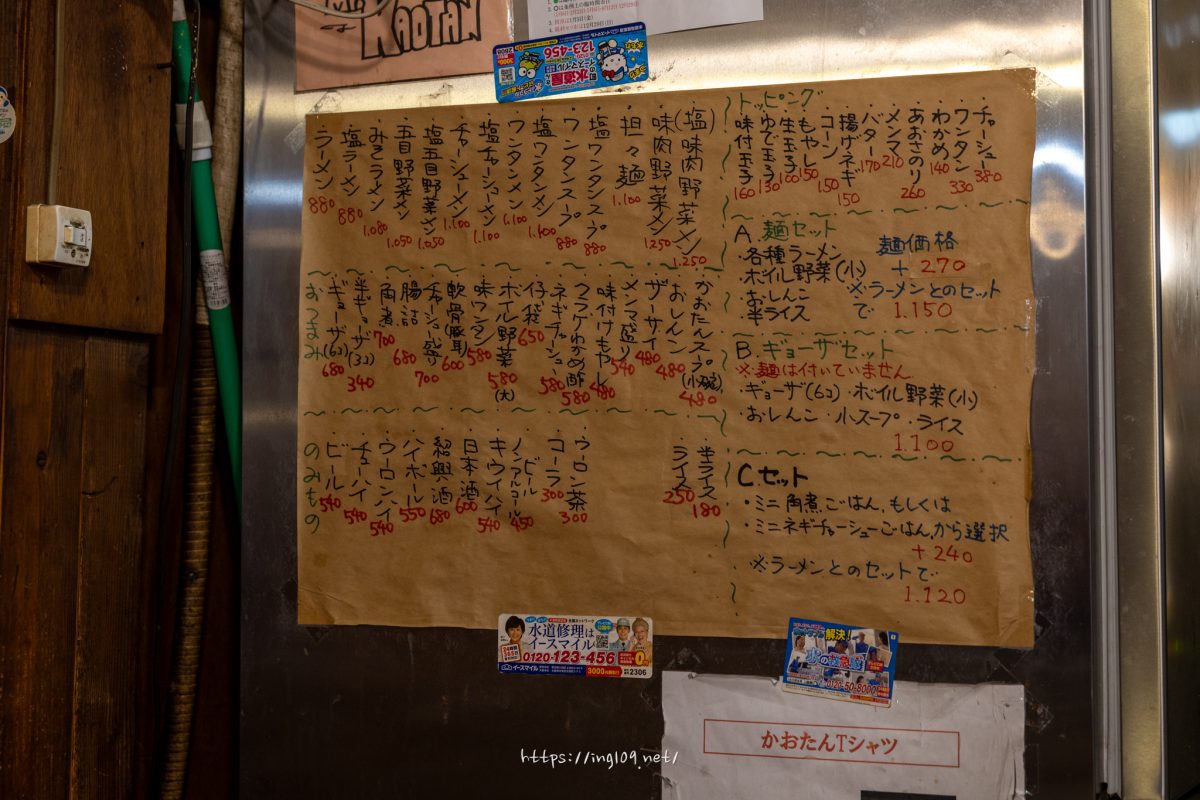 KAOTAN
水道屋
イースマイル
123-456
ラーメン 880
塩ラーメン 880
みそラーメン 1.080
五目野菜メン 1.050
塩五目野菜メン 1.050
チャーシューメン 1.100
塩チャーシューメン 1.100
ワンタンメン 1.100
塩ワンタンメン 1.100
ワンタンスープ 880
塩ワンタンスープ 880
担々麺 1.100
味肉野菜メン 1.250
(塩)味肉野菜メン 1.250
おつまみ
ギョーザ(6コ) 680
半ギョーザ(3コ) 340
角煮 700
腸詰 680
チャーシュー盛り 700
軟骨(豚耳) 600
味ワンタン 580
ボイル野菜 580(大)
仔袋 650
ネギチャーシュー 580
クラゲわかめ酢 580
味付けもやし 480
メンマ盛り 540
ザーサイ 480
おしんこ 480
かおたんスープ(小碗) 480
のみもの
ビール 540
チューハイ 540
ウーロンハイ 540
ハイボール 550
紹興酒 680
日本酒 600
キウイハイ 540
ノンアルコールビール 450
コーラ 300
ウーロン茶 300
ライス 250
半ライス 180
トッピング
味付玉子 160
ゆで玉子 130
生玉子 100
もやし 150
コーン 150
揚げネギ 150
バター 170
メンマ 210
あおさのり 260
わかめ 140
ワンタン 330
チャーシュー 380
A. 麺セット
・各種ラーメン 麺価格
ボイル野菜(小) + 270
・おしんこ ※ラーメンとのセット
半ライス で 1.150
B. ギョーザセット
※麺は付いていません
・ギョーザ(6コ)・ボイル野菜(小)
・おしんこ・小スープ・ライス
1.100
C. セット
・ミニ角煮ごはん、もしくは
・ミニネギチャーシューごはん、から選択
+240
※ラーメンとのセットで
1.120
水道修理は
イースマイル
0120-123-456
2306
解決!
0120-50-8000
かおたんTシャツ
https://ing109.net/